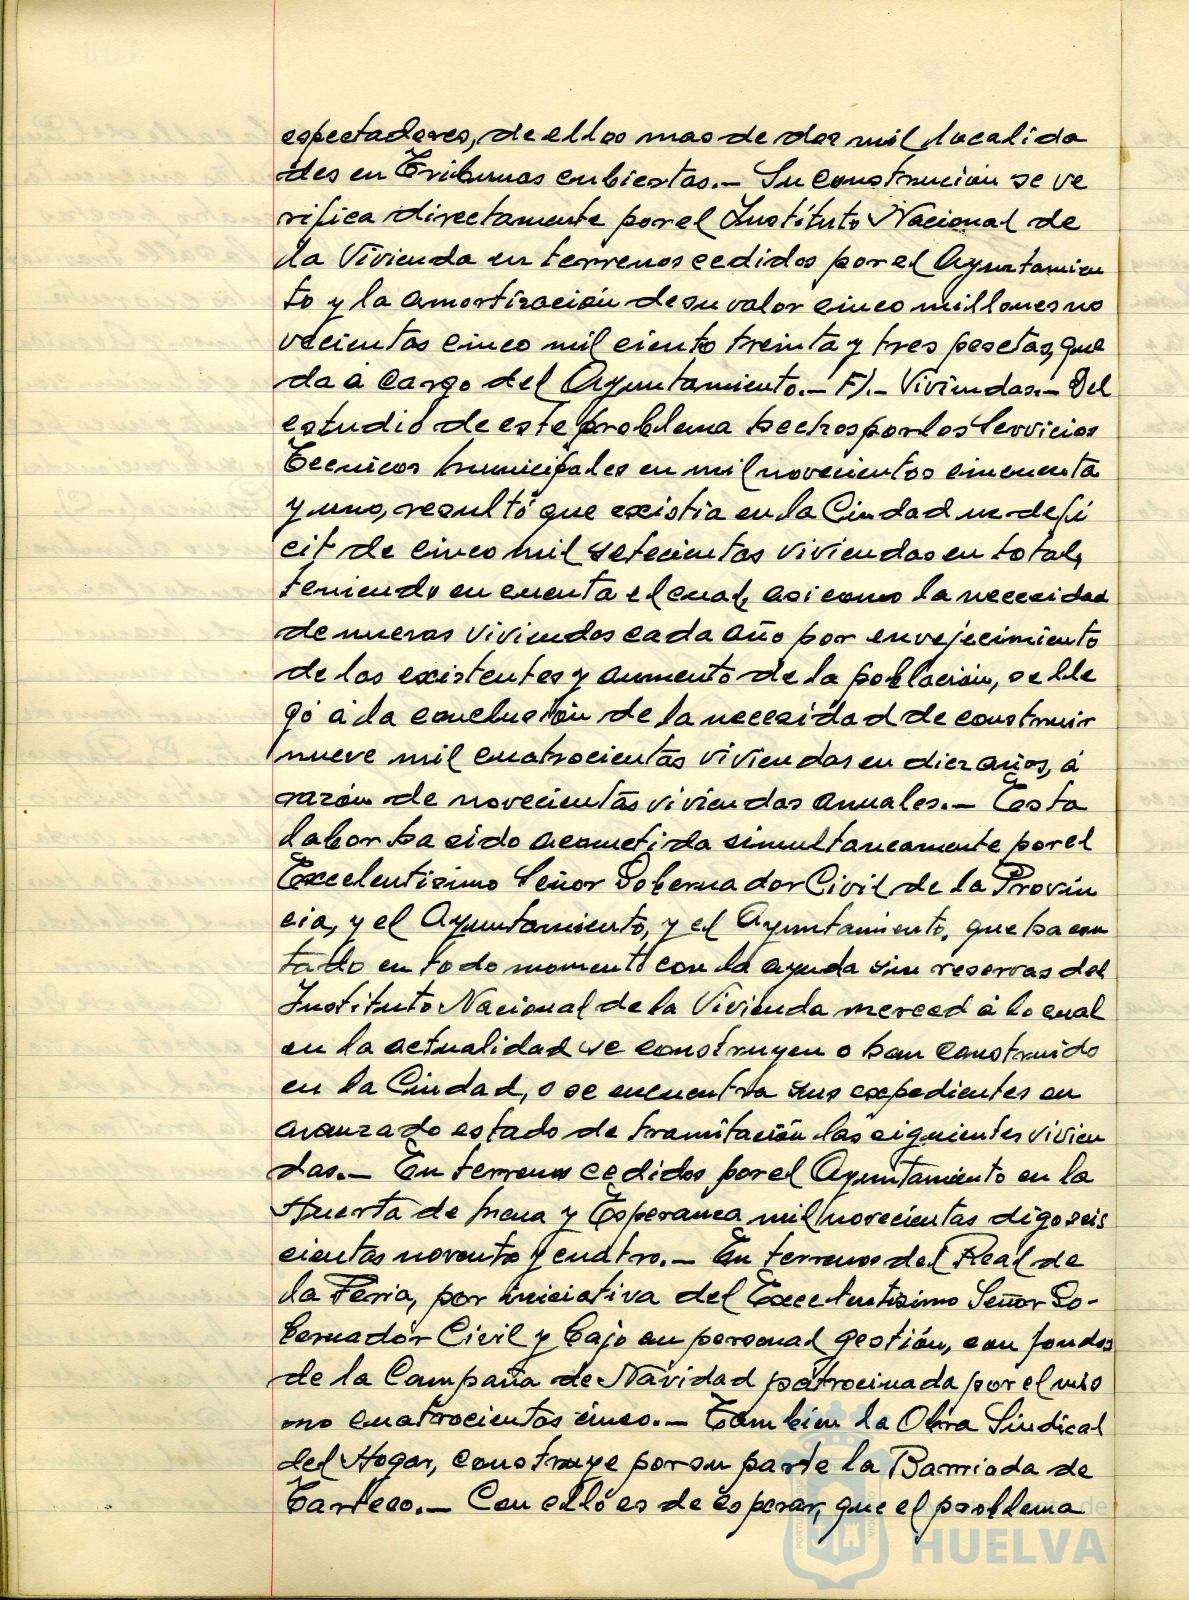 espectadores, de ellos mas de dos mil localida
des en Tribunas cubiertas.— Su construcion se ve
rifica directamente por el Instituto Nacional de
la Vivienda en terrenos cedidos por el Ayuntamien
to y la amortización de su valor cinco millones no
vecientas cinco mil ciento treinta y tres pesetas, que
da á cargo del Ayuntamiento.— F).— Viviendas.— Del
estudio de este problema hechos por los Servicios
Tecnicos municipales en mil novecientos cincuenta
y uno, resultó que existia en la Ciudad un defi
cit de cinco mil setecientas viviendas en total,
teniendo en cuenta el cual, asi como la necesidad
de nuevas viviendas cada año por envejecimiento
de las existentes y aumento de la población, se lle
gó á la conclusión de la necesidad de construir
nueve mil cuatrocientas viviendas en diez años, á
razón de novecientas viviendas anuales.— Esta
labor ha sido acometida simultaneamente por el
Excelentisimo Señor Gobernador Civil de la Provin
cia, y el Ayuntamiento, y el Ayuntamiento, que ha con
tado en todo momento con la ayuda sin reservas del
Instituto Nacional de la Vivienda merced á lo cual
en la actualidad se construyen o han construido
en la Ciudad, o se encuentra sus expedientes en
avanzado estado de tramitación las siguientes vivien
das.— En terrenos cedidos por el Ayuntamiento en la
Huerta de Mena y Esperanza mil novecientas digo seis
cientas noventa y cuatro.— En terrenos del Real de
la Feria, por iniciativa del Excelentisimo Señor Go-
bernador Civil y bajo su personal gestión, con fondos
de la Campaña de Navidad patrocinada por el mis
mo cuatrocientas cinco.— Tambien la Obra Sindical
del Hogar, construye por su parte la Barriada de
Tarteso.— Con elló es de esperar, que el problema
HUELVA